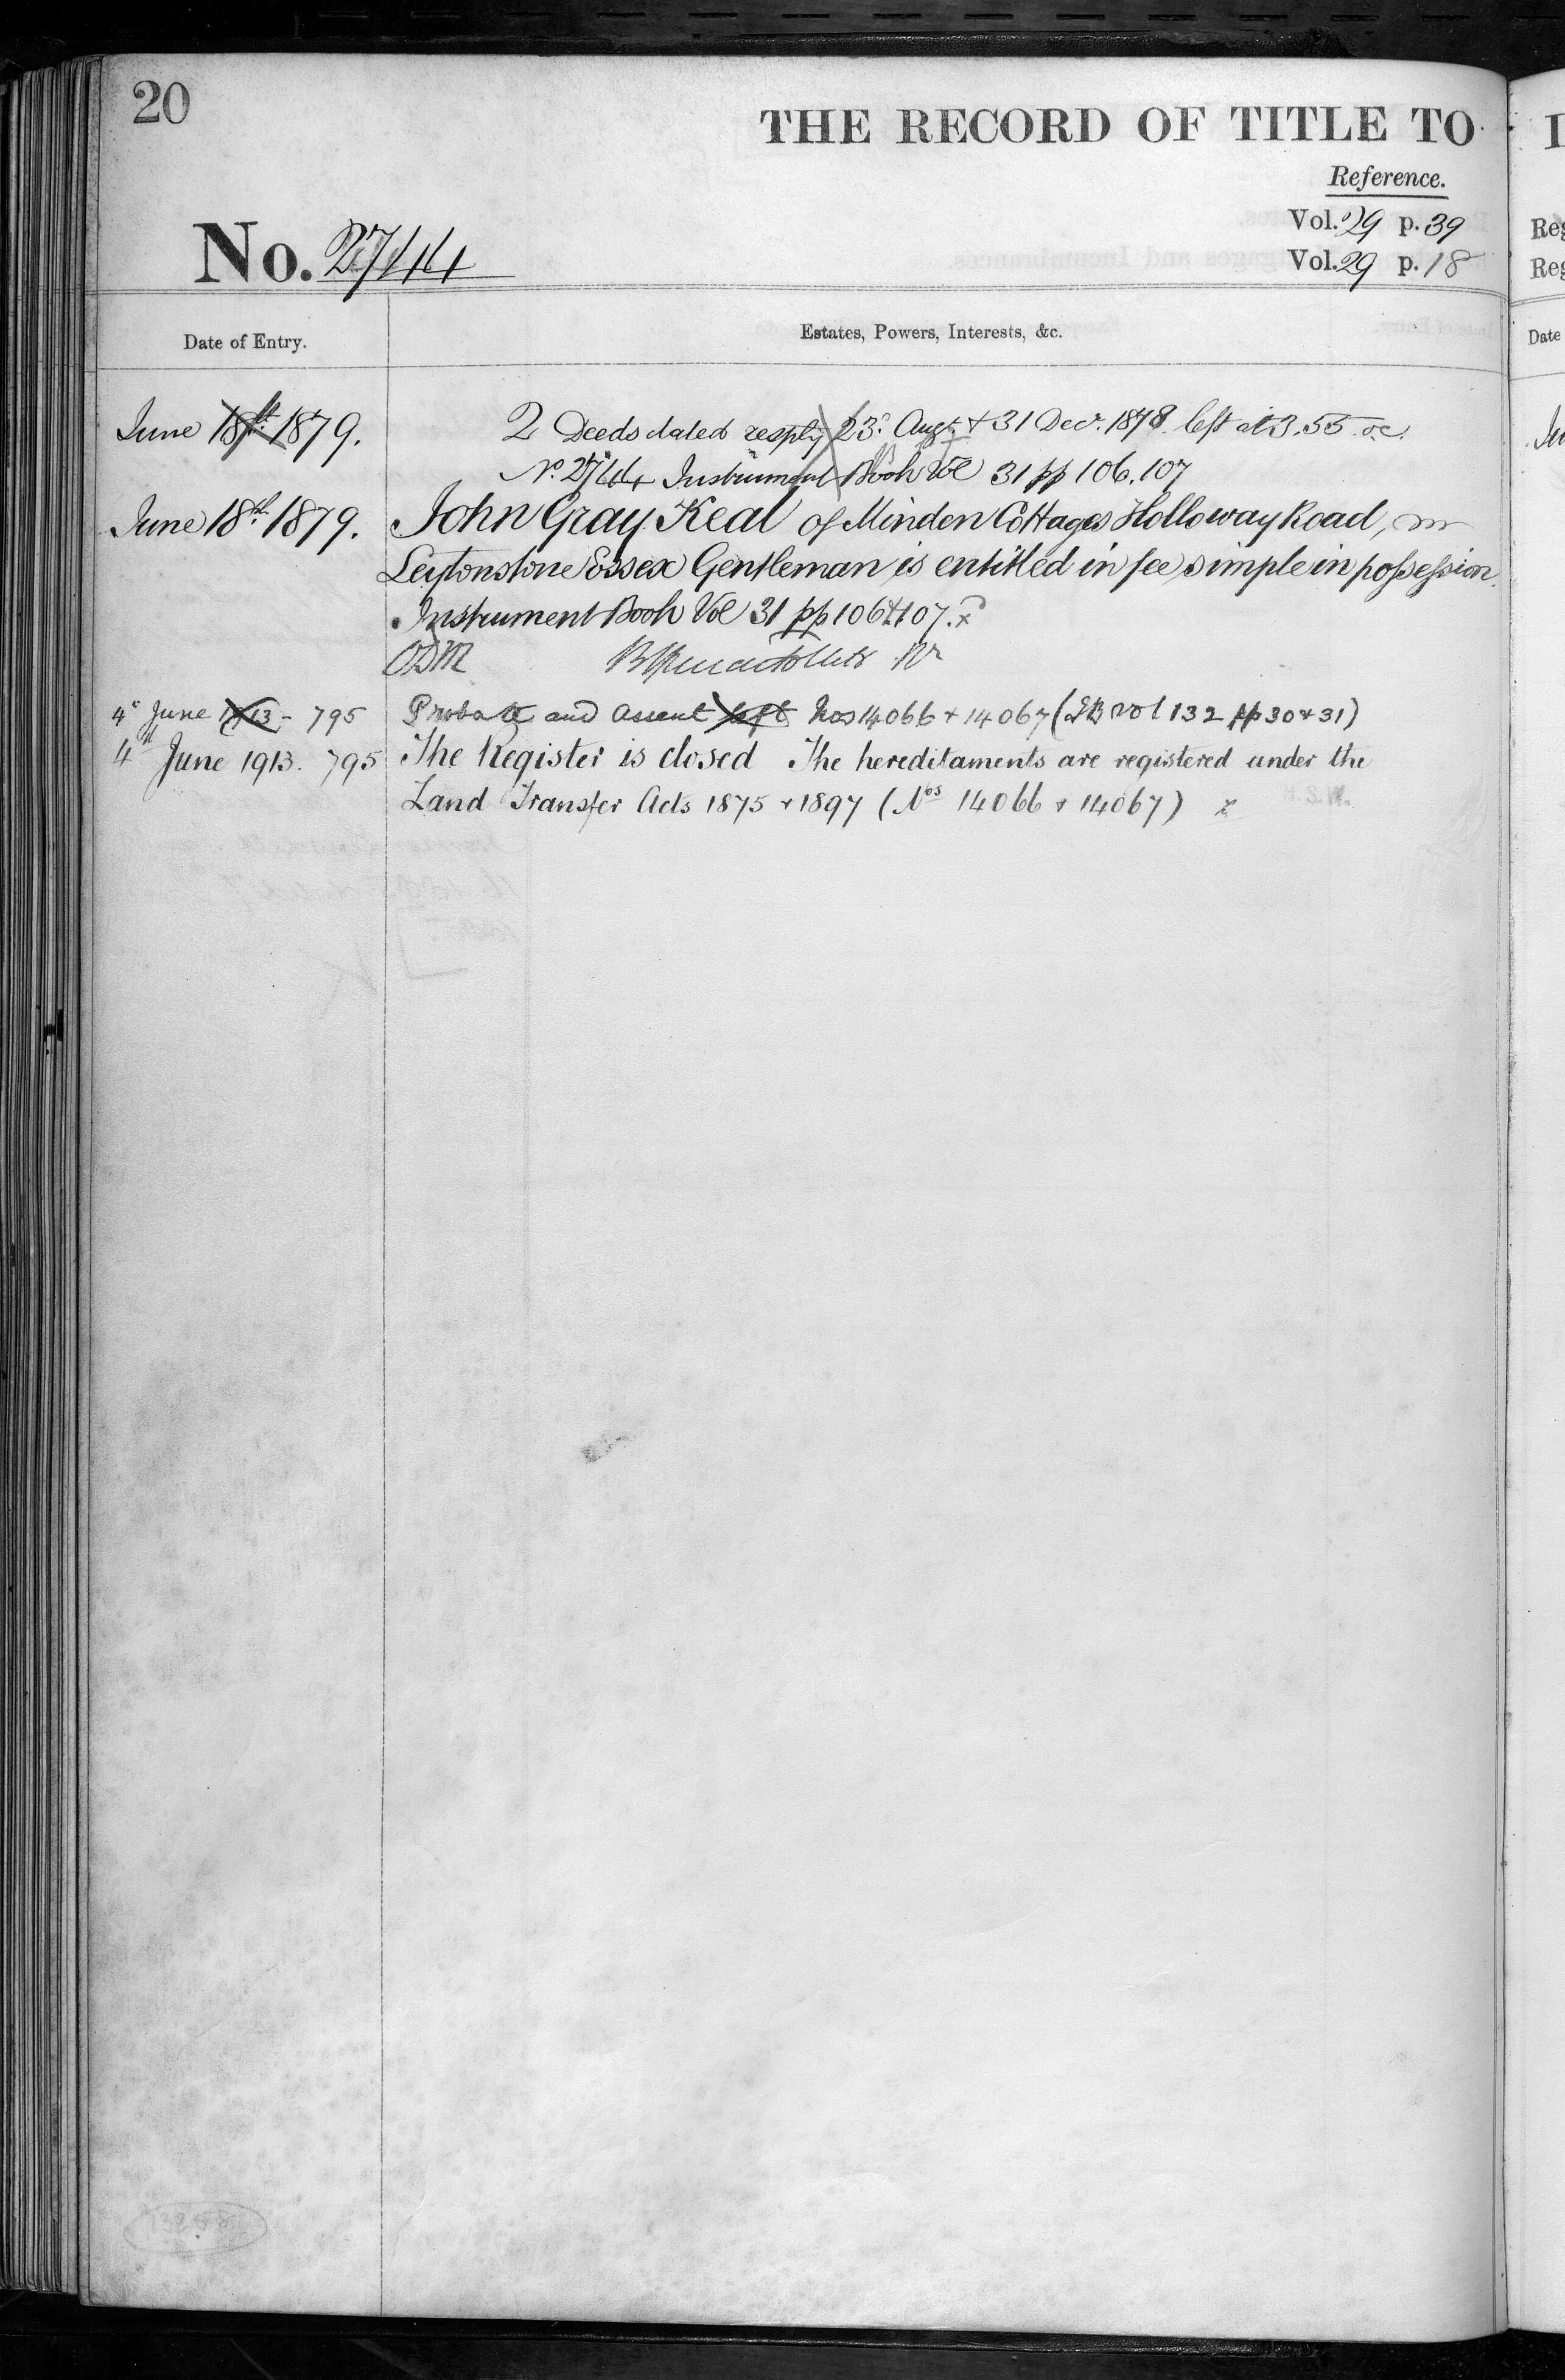 20
THE RECORD OF TITLE TO
Reference.
Vol. 29 p. 39
No. 2744
Vol. 29 p. 18
Date of Entry.
Estates, Powers, Interests, &c.
June 18th 1879.
2 Deeds dated resply 23d Augt + 31 Decr. 1878 left at 3.55
No. 2744 Instrument Book Vol 31 pp 106.107
June 18th 1879.
John Gray Keal of Minden Cottages Holloway Road, in
Leytonstone Essex Gentleman is entitled in fee simple in possession.
Instrument Book Vol 31 pp 106 & 107. x
4th June 1913 - 795
Probate and assent left Nos 14066 + 14067 (IB vol 132 pp 30 & 31)
4th June 1913. 795
The Register is closed The hereditaments are registered under the
Land Transfer Acts 1875 & 1897 (Nos 14066 & 14067) x
H.S.W.
I
Reg
Reg
Date